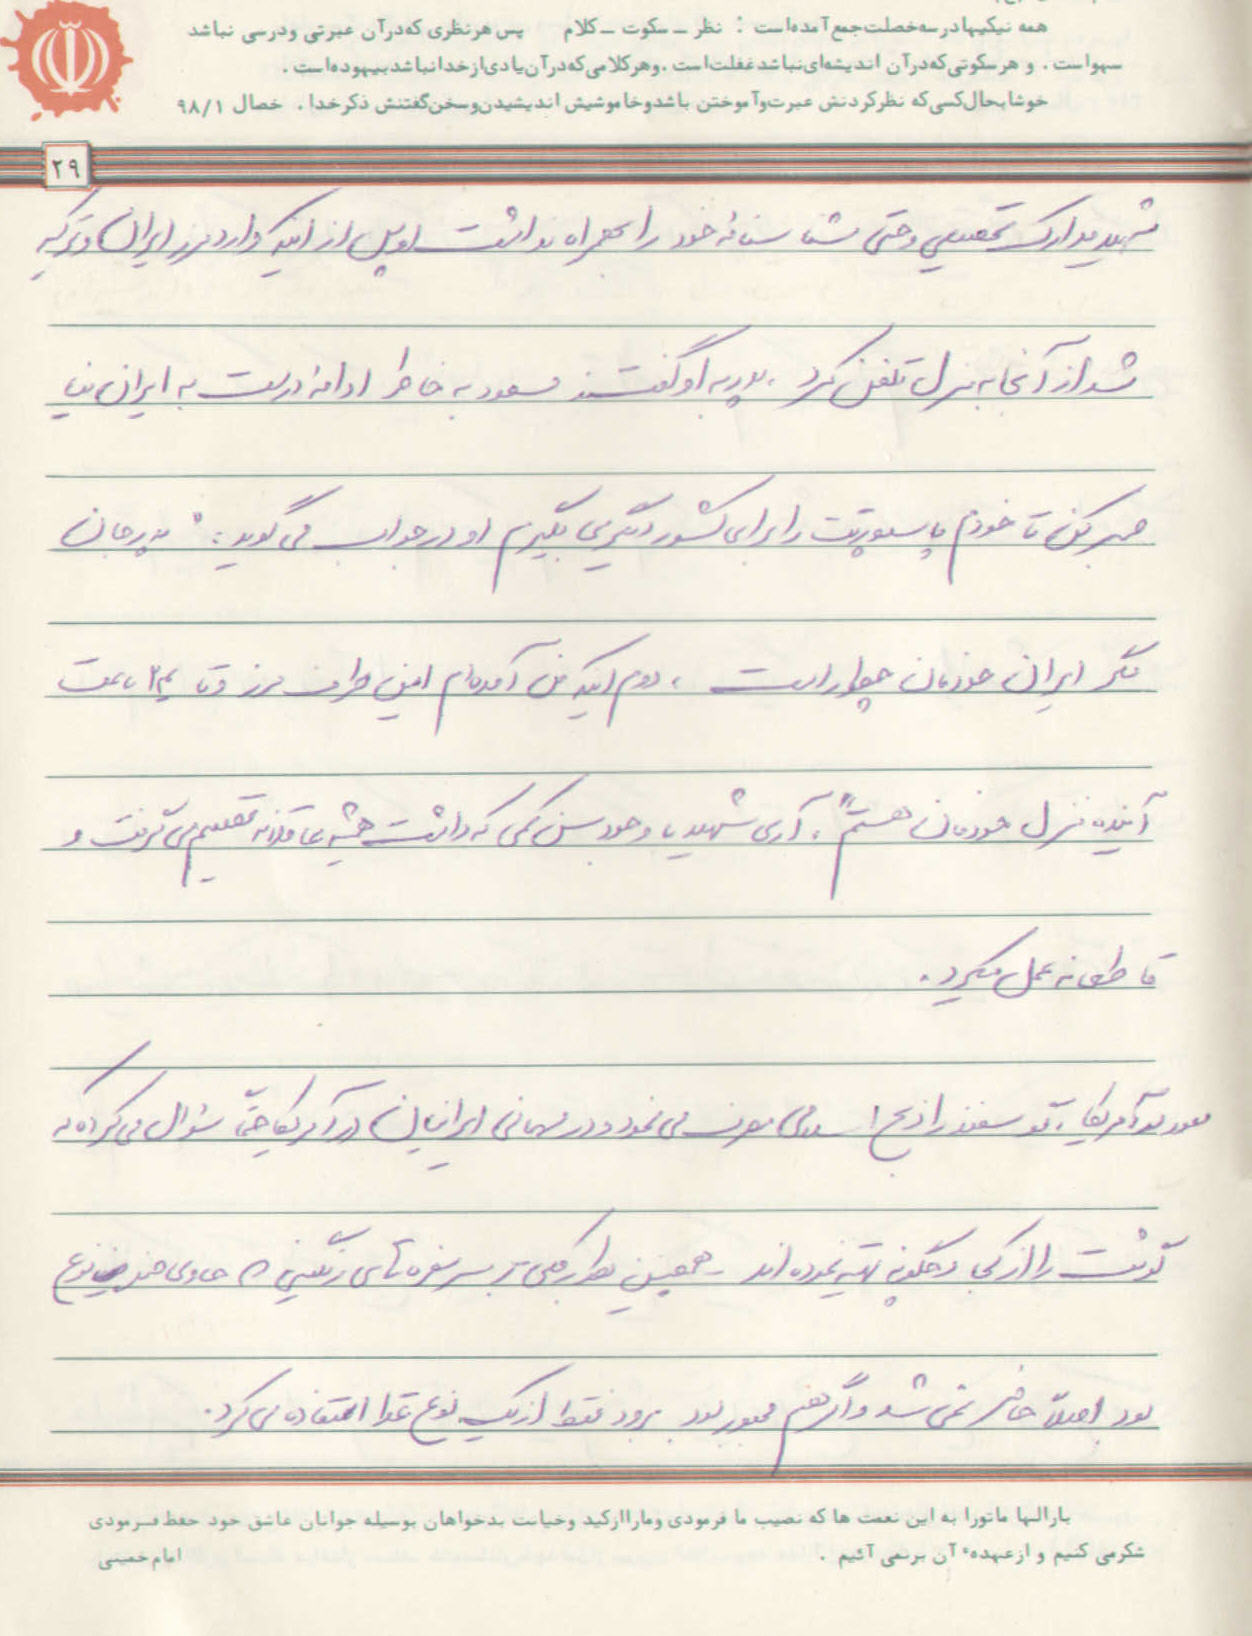 همه نیکیها در سه خصلت جمع آمده است : نظر ـ سکوت ـ کلام پس هر نظری که در آن عبرتی و درسی نباشد
سهو است . و هر سکوتی که در آن اندیشه‌ای نباشد غفلت است . و هر کلامی که در آن یادی از خدا نباشد بیهوده است .
خوشا بحال کسی که نظر کردنش عبرت و آموختن باشد و خاموشیش اندیشیدن و سخن گفتنش ذکر خدا . خصال ۹۸/۱
۲۹
شهید مدارک تحصیلی و حتی شناسنامهٔ خود را بهمراه نداشت او پس از اینکه وارد مرز ایران و ترکیه
شد از آنجا به منزل تلفن کرد ، پدر به او گفتند مسعود به خاطر ادامهٔ درست به ایران نیا
صبر بکن تا خودم پاسپورتت را برای کشور دیگری بگیرم او در جواب می گوید : " پدر جان
مگر ایران خودمان چطور است ، دوم اینکه من آمده‌ام این طرف مرز و تا ۲۴ ساعت
آینده منزل خودمان هستم " ، آری شهید با وجود سن کمی که داشت همیشه عاقلانه تصمیم می گرفت و
قاطعانه عمل میکرد .
در آمریکا ، گوسفند را ذبح اسلامی می نمود و در مهمانی ایرانیان در آمریکا حتماً سؤال می کرد که
گوشت را از کجا و چگونه تهیه نموده اند ـ همچنین بر سر سفره های رنگین حاوی چند نوع
بود اصلاً حاضر نمی شد و اگر هم مجبور بود برود فقط از یک نوع غذا استفاده می کرد .
بارالها ما تو را به این نعمت ها که نصیب ما فرمودی و ما را از کید و خیانت بدخواهان بوسیله جوانان عاشق خود حفظ فرمودی
شکر می کنیم و از عهده آن بر نمی آئیم . امام خمینی